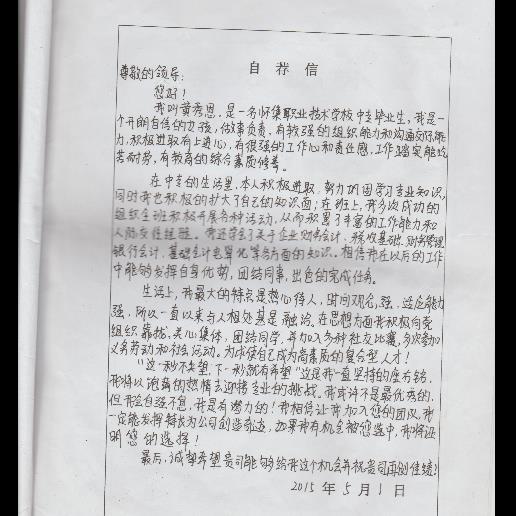 自荐信
尊敬的领导：
您好！
我叫黄秀恩，是一名怀集职业技术学校中专毕业生，我是一
个开朗自信的女孩，做事负责，有较强的组织能力和沟通交际能
力，积极进取有上进心，有很强的工作心和责任感，工作踏实能吃
苦耐劳，有较高的综合素质修养。
在中专的生活里，本人积极进取，努力巩固学习专业知识，
同时我也积极的扩大了自己的知识面；在班上，我多次成功的
组织全班积极开展各种活动，从而积累了丰富的工作能力和
人际交往经验。我还学会了关于企业财务会计、税收基础、财务管理
银行会计、基础会计电算化等各方面的知识。相信我在以后的工作
中能够发挥自身优势，团结同事，出色的完成任务。
生活上，我最大的特点是热心待人，时间观念强，适应能力
强，所以一直以来与人相处甚是融洽。在思想方面我积极向党
组织靠拢，关心集体，团结同学，并加入多种社交比赛，多次参加
义务劳动和社会活动。为求使自己成为高素质的复合型人才！
“这一秒不失望，下一秒就有希望”这是我一直坚持的座右铭，
我将以饱满的热情去迎接专业的挑战。我或许不是最优秀的，
但我会自强不息，我是有潜力的！我相信让我加入您的团队，我
一定能发挥特长为公司创造奇迹，如果我有机会被您选中，我将证
明您的选择！
最后，诚挚希望贵司能够给我这个机会并祝贵司再创佳绩！
2015年5月1日